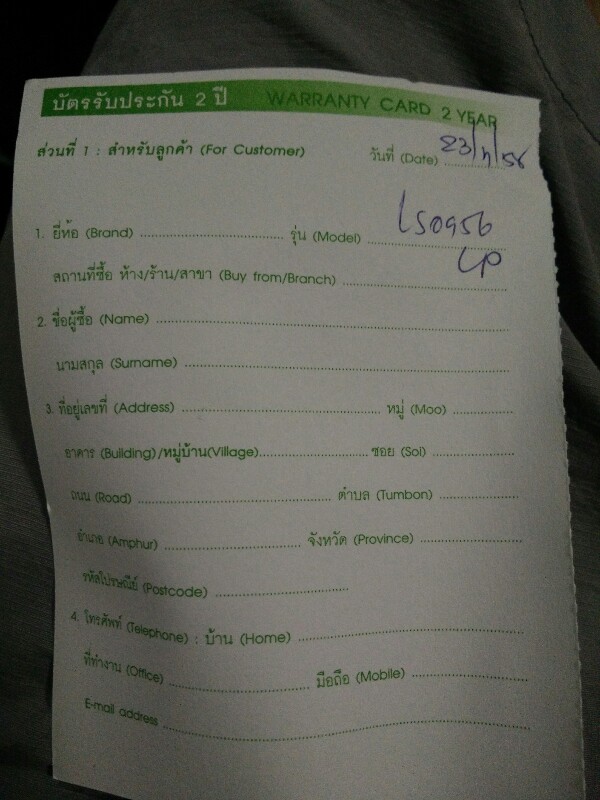 บัตรรับประกัน 2 ปี WARRANTY CARD 2 YEAR
ส่วนที่ 1 : สำหรับลูกค้า (For Customer) วันที่ (Date) ..............
1. ยี่ห้อ (Brand) .............................. รุ่น (Model) ..............................
สถานที่ซื้อ ห้าง/ร้าน/สาขา (Buy from/Branch) ..............................
2. ชื่อผู้ซื้อ (Name) ..............................
นามสกุล (Surname) ..............................
3. ที่อยู่เลขที่ (Address) .............................. หมู่ (Moo) ..............
อาคาร (Building)/หมู่บ้าน(Village).............................. ซอย (Soi) ..............
ถนน (Road) .............................. ตำบล (Tumbon) ..............
อำเภอ (Amphur) .............................. จังหวัด (Province) ..............
รหัสไปรษณีย์ (Postcode) ..............................
4. โทรศัพท์ (Telephone) : บ้าน (Home) ..............................
ที่ทำงาน (Office) .............................. มือถือ (Mobile) ..............
E-mail address ..............................